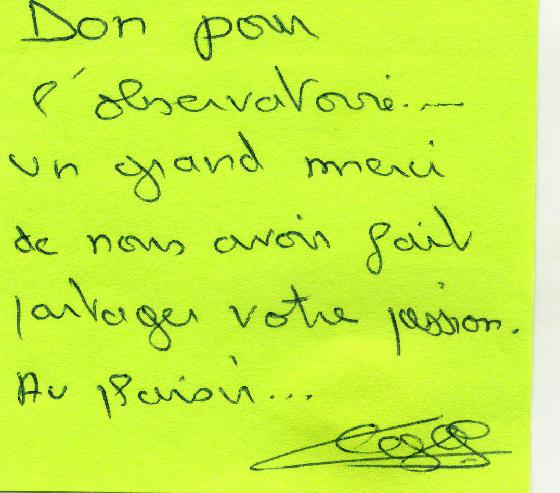 Don pour
l'observatoire...
un grand merci
de nous avoir fait
partager votre passion.
Au plaisir...